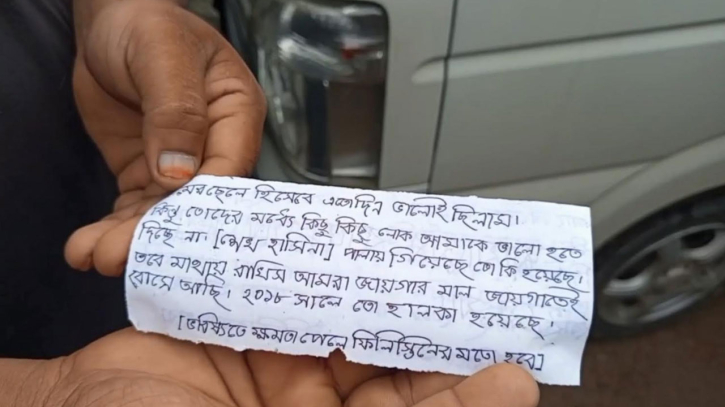 ছেলে হিসেবে এতদিন ভালোই ছিলাম।
কিন্তু তোদের মধ্যে কিছু কিছু লোক আমাকে ভালো হতে
দিচ্ছে না। [শেখ হাসিনা] পালায় গিয়েছে তো কি হয়েছে।
তবে মাথায় রাখিস আমরা জায়গার মাল জায়গাতেই
বোসে আছি। ২০১৮ সালে তো হালকা হয়েছে।
[ভবিষ্যতে ক্ষমতা পেলে ফিলিস্তিনের মতো হবে]